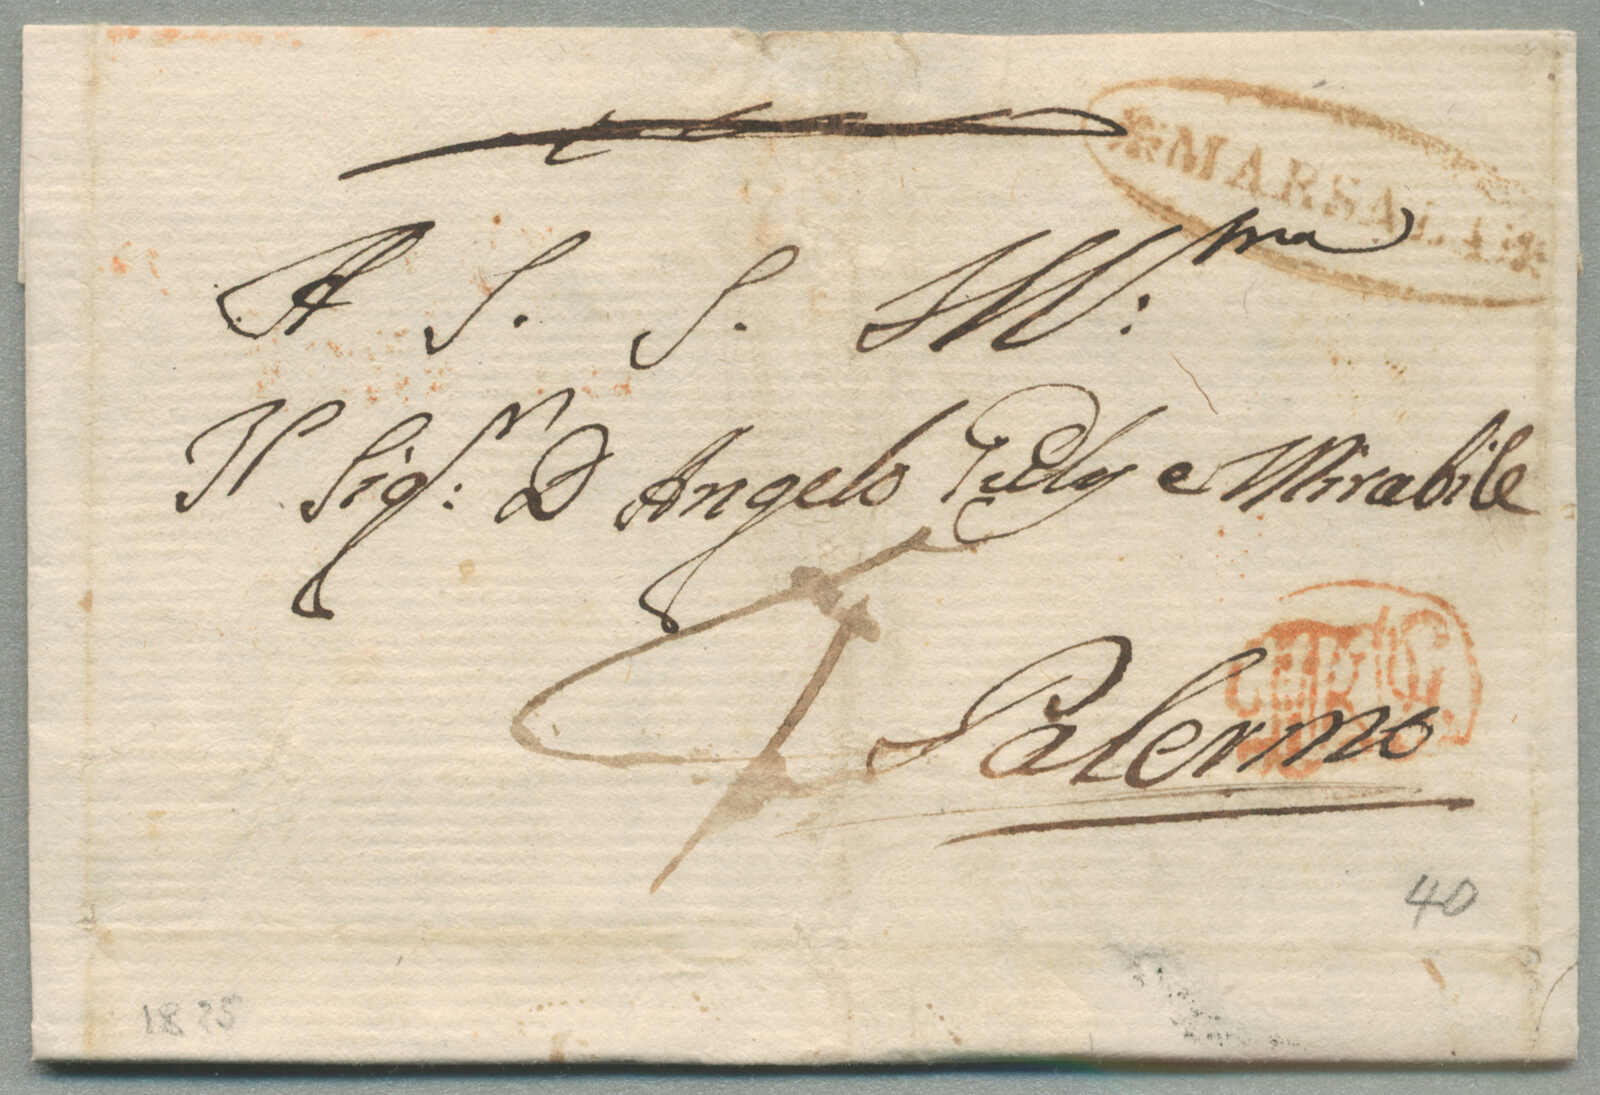 MARSALA
A S. S. Ill.ma
Il Sig.r D Angelo e Mirabile
Palermo
40
1825